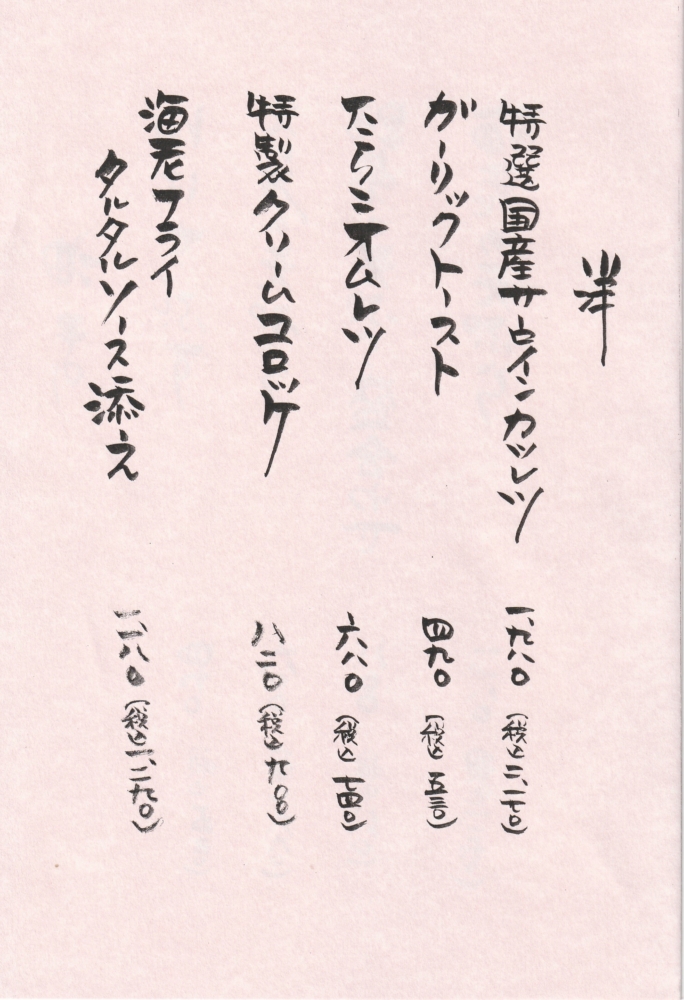 特選国産サーロインカツレツ 一、九八〇（税込二、一七〇）
ガーリックトースト 四九〇（税込五三〇）
たらこオムレツ 六八〇（税込七四〇）
特製クリームコロッケ 八二〇（税込九〇〇）
海老フライ
タルタルソース添え 一、一八〇（税込一、二九〇）